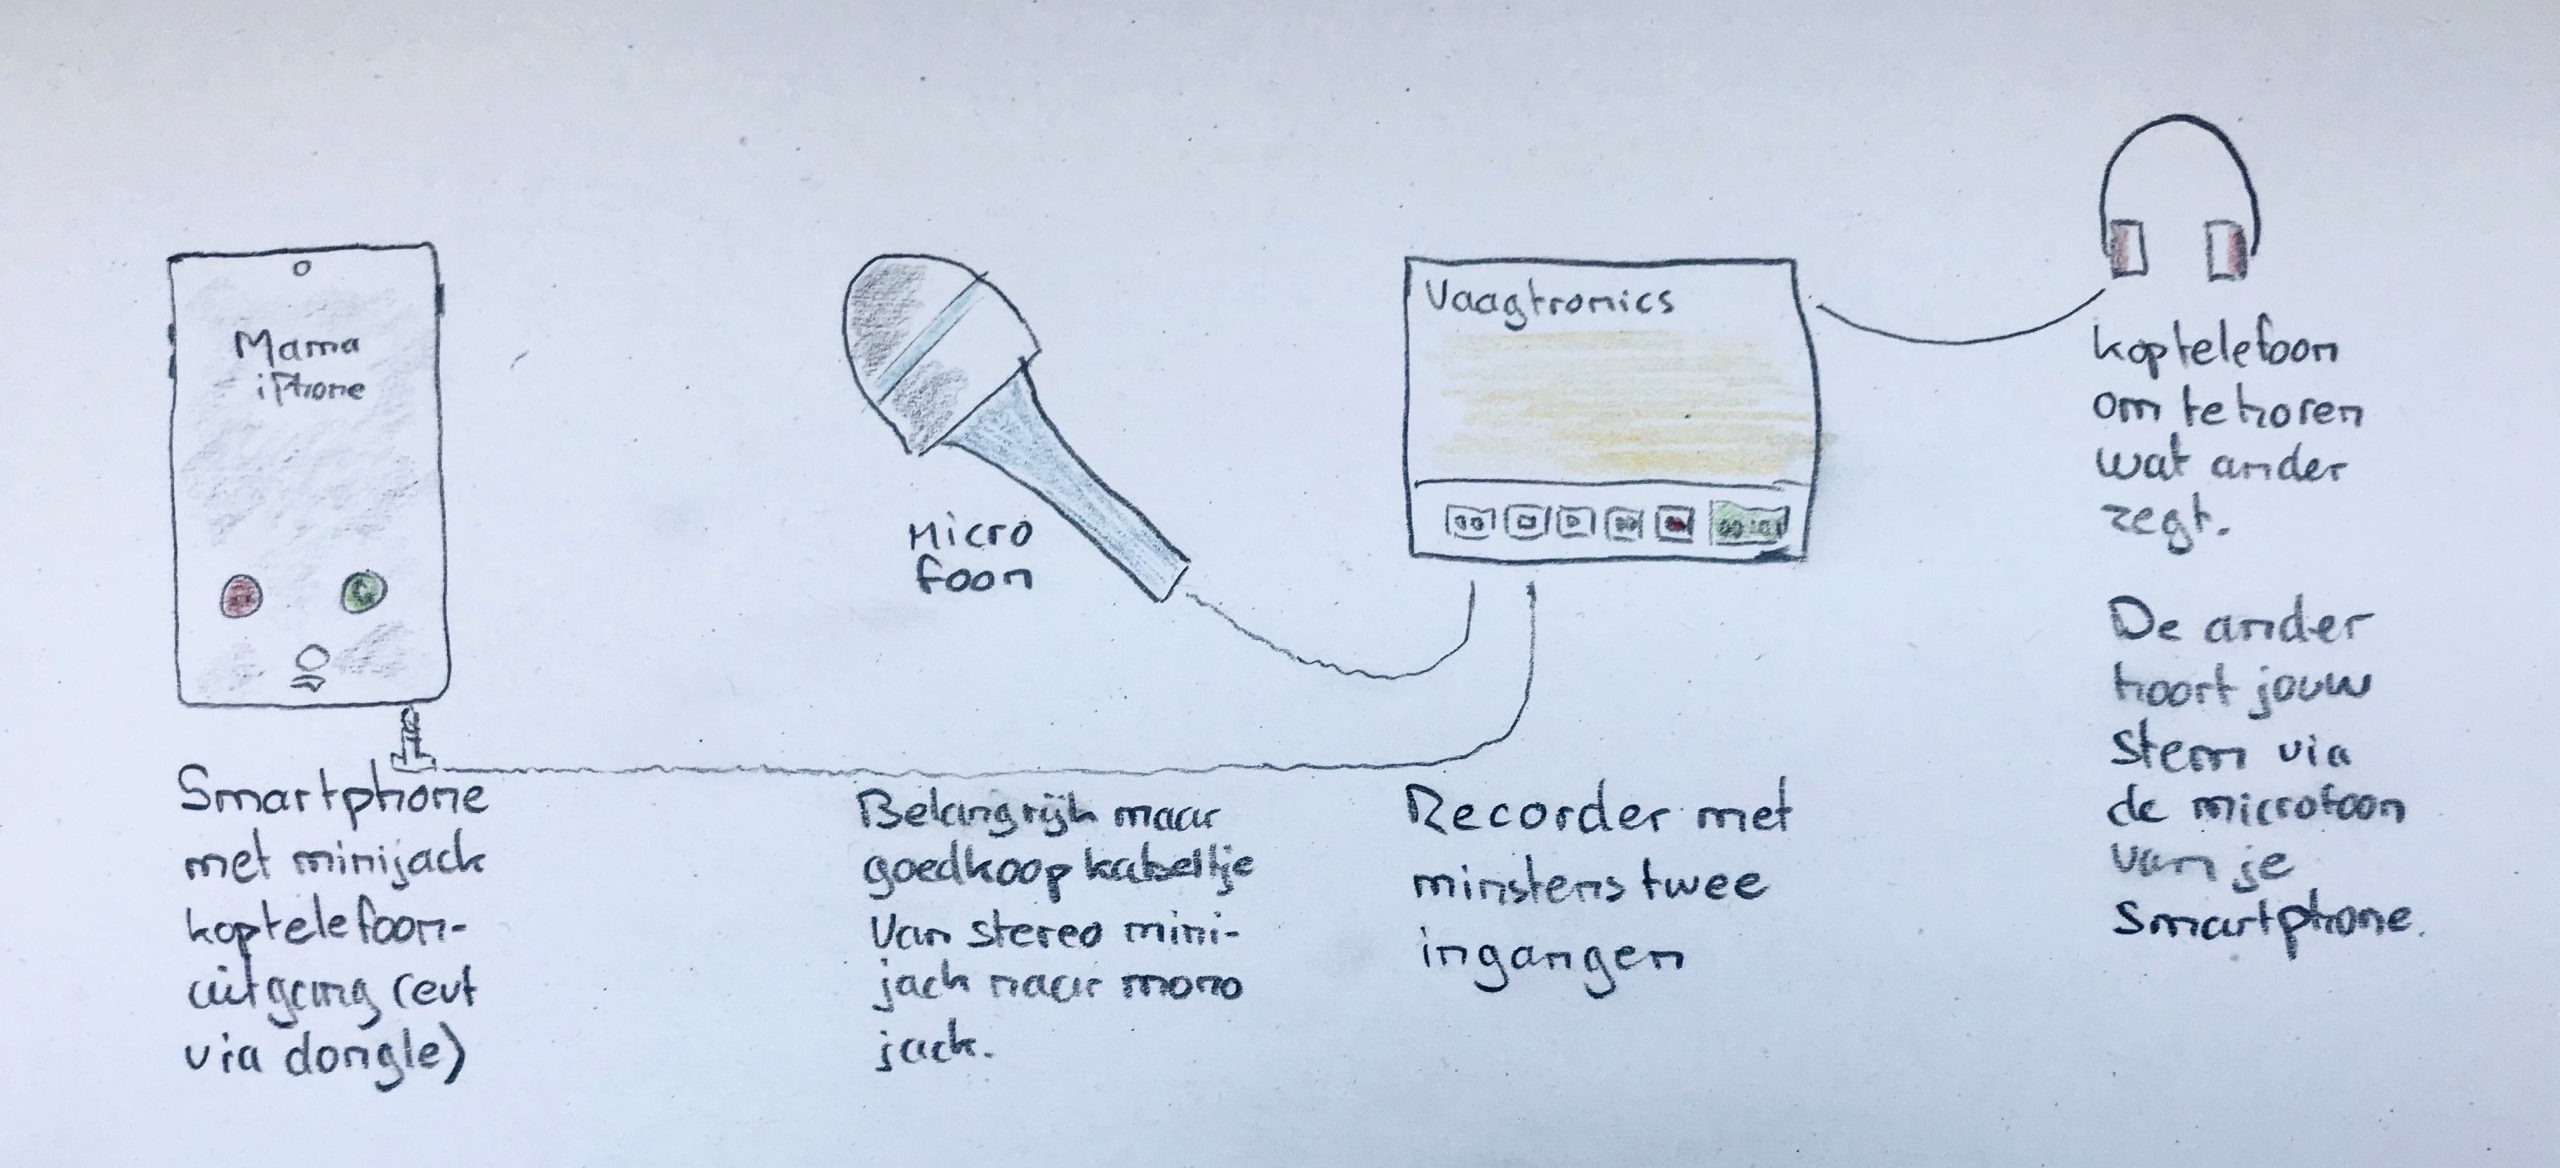 Mama
iPhone
Smartphone
met minijack
koptelefoon-
uitgang (evt
via dongle)
Micro
foon
Belangrijk maar
goedkoop kabeltje
van stereo mini-
jack naar mono
jack.
Vaagtronics
00:01
Recorder met
minstens twee
ingangen
koptelefoon
om te horen
wat ander
zegt.
De ander
hoort jouw
stem via
de microfoon
van je
Smartphone.